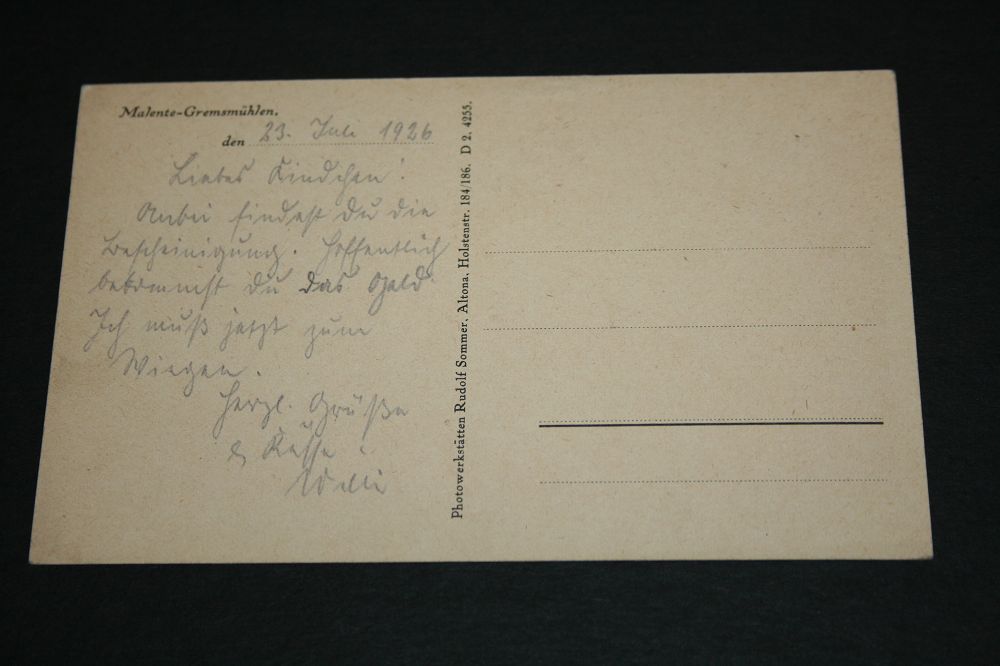 Malente-Gremsmühlen,
den 23. Juli 1926
Liebes Kindchen!
Anbei findest Du die
Bescheinigung. Hoffentlich
bekommst Du das Geld.
Ich muß jetzt zum
Wiegen.
Herzl. Grüße
& Küsse
Willi
Photowerkstätten Rudolf Sommer, Altona, Holstenstr. 184/186. D 2. 4255.